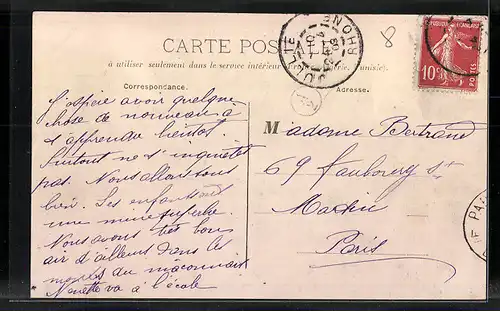 CARTE POSTALE
à utiliser seulement dans le service intérieur (France, Algérie, Tunisie).
Correspondance.
Adresse.
J'espère avoir quelque
chose de nouveau à
t'apprendre bientôt
Surtout ne t'inquiete
pas. Nous allons tous
bien. Les enfants ont
une mine superbe
Nous avons très bon
air d'ailleurs dans les
montes du maconnais
Nenette va à l'école
M adame Bertrand
69 faubourg St
Martin
Paris
8
JULLIÉ
RHONE
RÉPUBLIQUE FRANÇAISE
10c
POSTES
PARIS